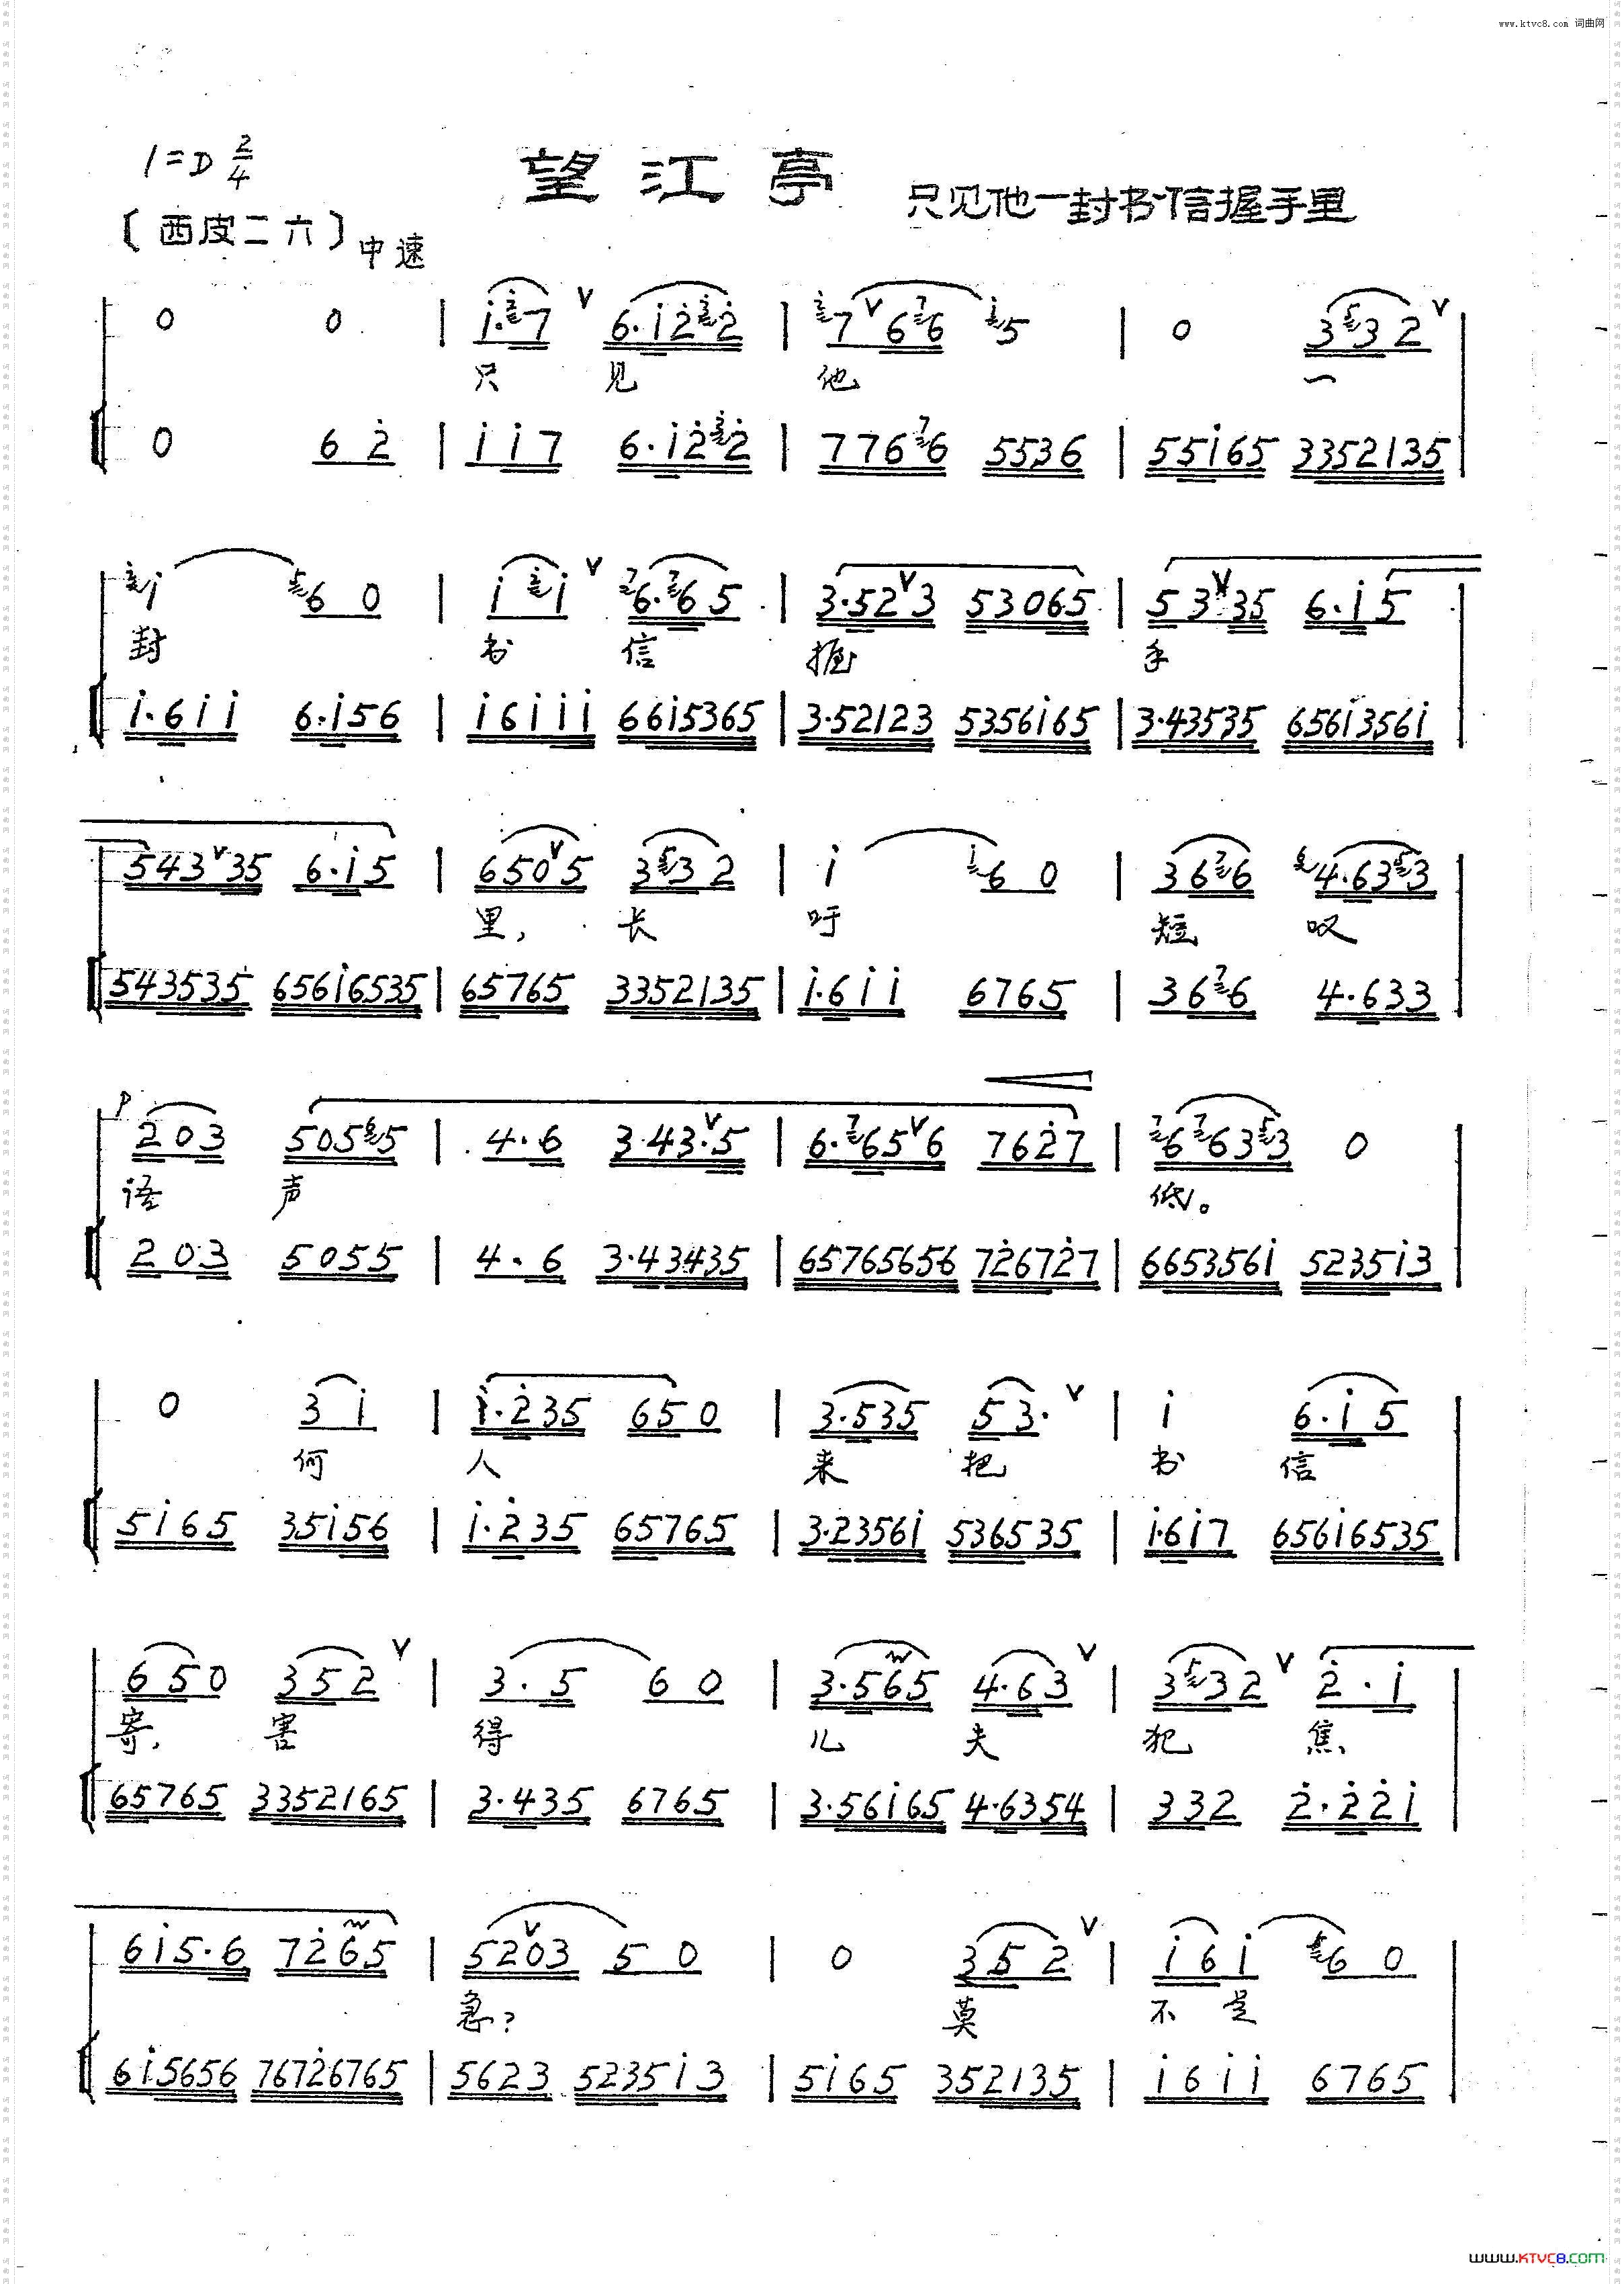 www.ktvc8.com 词曲网
1=D 2/4
望江亭 只见他一封书信握手里
〔西皮二六〕中速
0 0 | i·7 6·i22 | 7 66 5 | 0 332
只 见 他 一
0 62 | ii7 6·i22 | 7766 5536 | 55i65 3352135
i 60 | ii 6·65 | 3·523 53065 | 5335 6·i5
封 书 信 握 手
i·6ii 6·i56 | i6iii 66i5365 | 3·52123 5356i65 | 3·43535 656i356i
54335 6·i5 | 6505 332 | i 60 | 366 4·633
里, 长 吁 短 叹
543535 656i6535 | 65765 3352135 | i·6ii 6765 | 366 4·633
p
203 5055 | 4·6 3·43·5 | 6·656 7627 | 6633 0
语 声 低。
203 5055 | 4·6 3·43435 | 65765656 726727 | 665356i 5235i3
0 3i | i·235 650 | 3·535 53· | i 6·i5
何 人 来 把 书 信
5i65 35i56 | i·235 65765 | 3·2356i 536535 | i·6i7 656i6535
650 352 | 3·5 60 | 3·565 4·63 | 332 2·i
寄, 害 得 儿 夫 犯 焦
65765 3352165 | 3·435 6765 | 3·56i65 4·6354 | 332 2·22i
6i5·6 7265 | 5203 50 | 0 352 | i6i 60
急? 莫 不 是
6i5656 76726765 | 5623 5235i3 | 5i65 352135 | i6ii 6765
www.KTVC8.COM